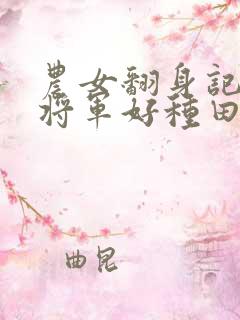 農女翻身記
將軍好種田
曲昆